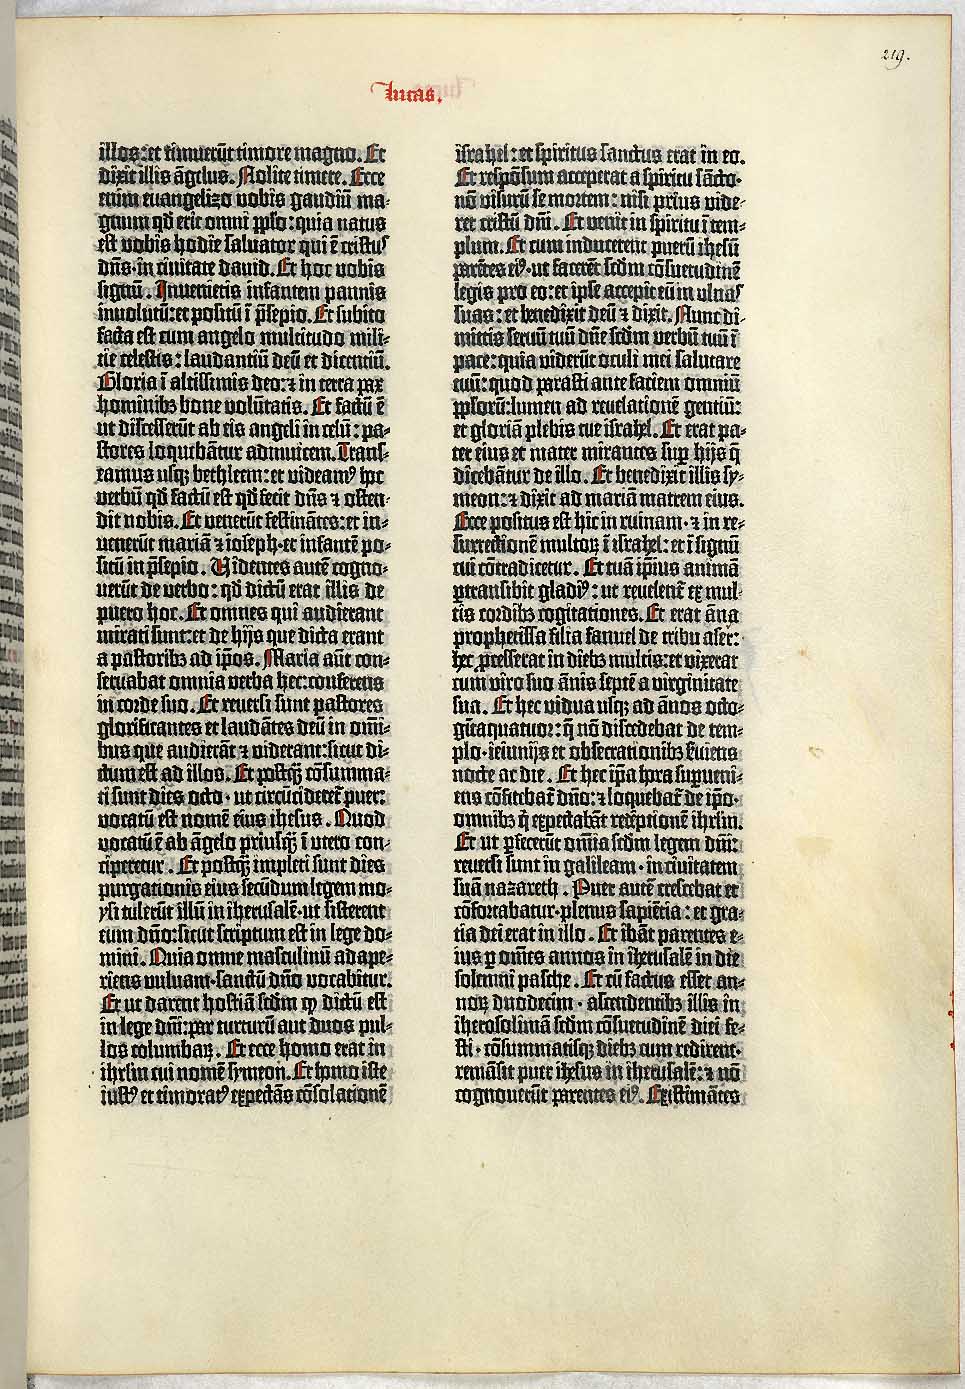 219.
Lucas.
illos: et timuerūt timore magno. Et
dixit illis āgelus. Nolite timere. Ecce
enim euangelizo vobis gaudiū ma-
gnum qđ erit omni pp̄lo: quia natus
est vobis hodie saluator qui ē cristus
dn̄s· in ciuitate dauid. Et hoc uobis
signū. Inuenietis infantem pannis
inuolutū: et positū ī p̄sepio. Et subito
facta est cum angelo multitudo mili-
tie celestis: laudantiū deū et dicentiū.
Gloria ī altissimis deo: ⁊ in terra pax
hominibꝫ bone volūtatis. Et factū ē
ut discesserūt ab eis angeli in celū: pa-
stores loquibātur adinuicem. Trans-
eamus usqꝫ bethleem: et videamꝰ hoc
verbū qđ factū est qđ fecit dn̄s ⁊ osten-
dit nobis. Et venerūt festināntes: et in-
uenerūt mariā ⁊ ioseph· et infantē po-
sitū in p̄sepio. Videntes autē cogno-
uerūt de verbo: qđ dictū erat illis de
puero hoc. Et omnes qui audierant
mirati sunt: et de hijs que dicta erant
a pastoribꝫ ad ip̄os. Maria aūt con-
seruabat omnia verba hec: conferens
in corde suo. Et reuersi sunt pastores
glorificantes et laudātes deū in om̄i-
bus que audierāt ⁊ viderant: sicut di-
ctum est ad illos. Et postq̄ꝫ cōsumma-
ti sunt dies octo· ut circūcideret̄ puer:
vocatū est nomē eius ihesus. Quod
vocatū ē ab āgelo priusq̄ꝫ ī utero con-
ciperetur. Et postq̄ꝫ impleti sunt dies
purgationis eius secūdum legem mo-
ysi tulerūt illū in iherusalē· ut sisterent
eum dn̄o: sicut scriptum est in lege do-
mini. Quia omne masculinū adape-
riens vuluam· sanctū dn̄o vocabitur.
Et ut darent hostiā scd̄m qꝫ dictū est
in lege dn̄i: par turturū aut duos pul-
los columbaꝝ. Et ecce homo erat in
ihrl̄m cui nomē symeon. Et homo iste
iustꝰ et timoratꝰ expectās cōsolationē
israhel: et spiritus sanctus erat in eo.
Et respōsum acceperat a spiritu sācto·
nō visurū se mortem: nisi prius vide-
ret cristū dn̄i. Et venit in spiritu ī tem-
plum. Et cum inducerent puerū ihesū
parētes eiꝰ· ut facerēt scd̄m cōsuetudinē
legis pro eo: et ipse accepit eū in ulnas
suas: et benedixit deū ⁊ dixit. Nunc di-
mittis seruū tuū dn̄e scd̄m verbū tuū ī
pace: quia viderūt oculi mei salutare
tuū: quod parasti ante faciem omniū
pp̄lorū: lumen ad reuelationē gentiū:
et gloriā plebis tue israhel. Et erat pa-
ter eius et mater mirantes sup̄ hijs q̄
dicebāntur de illo. Et benedixit illis sy-
meon: ⁊ dixit ad mariā matrem eius.
Ecce positus est hic in ruinam· ⁊ in re-
surrectionē multoꝝ ī israhel: et ī signū
cui cōtradicetur. Et tuā ip̄ius animā
ꝑtransibit gladiꝰ: ut reuelent̄ ex mul-
tis cordibꝫ cogitationes. Et erat āna
prophetissa filia fanuel de tribu aser:
hec ꝓcesserat in diebꝫ multis: et vixerat
cum viro suo ānis septē a virginitate
sua. Et hec vidua usqꝫ ad ānos octo-
gītaquatuor: q̄ nō discedebat de tem-
plo· ieiunijs et obsecrationibꝫ s̄uiens
nocte ac die. Et hec ip̄a hora sup̄ueni-
ens cōfitebat̄ dn̄o: ⁊ loquebat̄ de ip̄o·
omnibꝫ q̄ expectabāt redēptionē ihrl̄m.
Et ut ꝑfecerūt om̄ia scd̄m legem dn̄i:
reuersi sunt in galileam· in ciuitatem
suā nazareth. Puer autē crescebat et
cōfortabatur· plenus sapiētia: et gra-
tia dei erat in illo. Et ibāt parentes e-
ius ꝑ om̄es annos in iherusalē in die
solemni pasche. Et cū factus esset an-
noꝝ duodecim· ascendentibꝫ illis in
iherosolimā scd̄m cōsuetudinē diei fe-
sti· cōsummatisqꝫ diebꝫ cum redirent·
remāsit puer ihesus in iherusalē: ⁊ nō
cognouerūt parentes eiꝰ. Existimātes